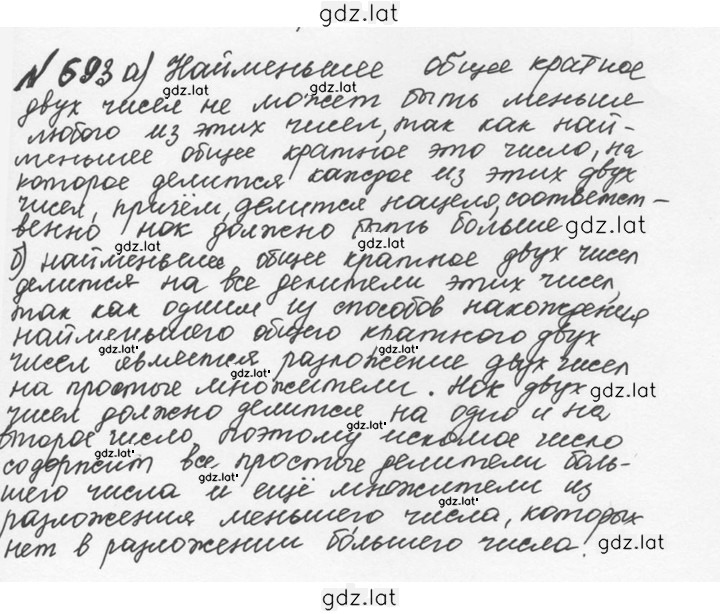 gdz.lat
№693 а) Наименьшее общее кратное
gdz.lat gdz.lat
двух чисел не может быть меньше
любого из этих чисел, так как наи-
меньшее общее кратное это число, на
которое делится каждое из этих двух
gdz.lat gdz.lat
чисел, причём, делится нацело, соответст-
венно нок должно быть больше gdz.lat
gdz.lat
б) наименьшее общее кратное двух чисел
делится на все делители этих чисел,
так как одним из способов нахождения
наименьшего общего кратного двух
gdz.lat gdz.lat
чисел является разложение двух чисел
на простые множители. Нок двух gdz.lat
чисел должно делится на одно и на
gdz.lat gdz.lat
второе число, поэтому искомое число
содержит все простые делители боль-
шего числа и ещё множители из
gdz.lat gdz.lat
разложения меньшего числа, которых
нет в разложении большего числа. gdz.lat
gdz.lat